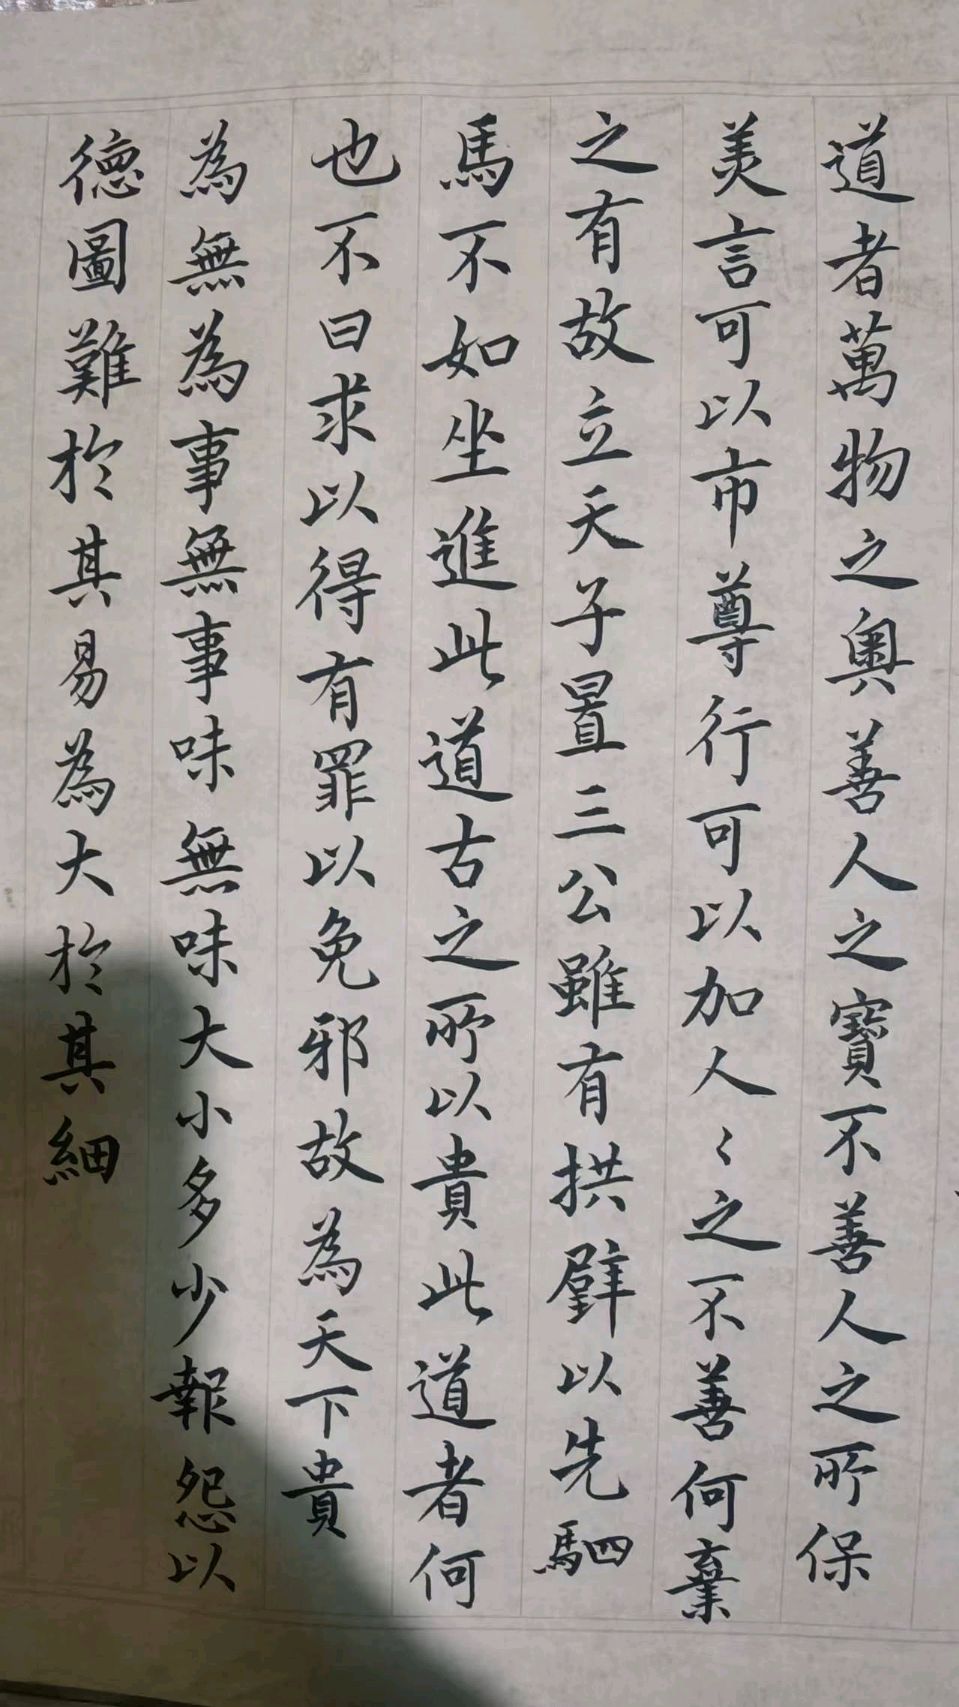 道者萬物之奧善人之寶不善人之所保
美言可以市尊行可以加人〻之不善何棄
之有故立天子置三公雖有拱璧以先駟
馬不如坐進此道古之所以貴此道者何
也不曰求以得有罪以免邪故為天下貴
為無為事無事味無味大小多少報怨以
德圖難於其易為大於其細